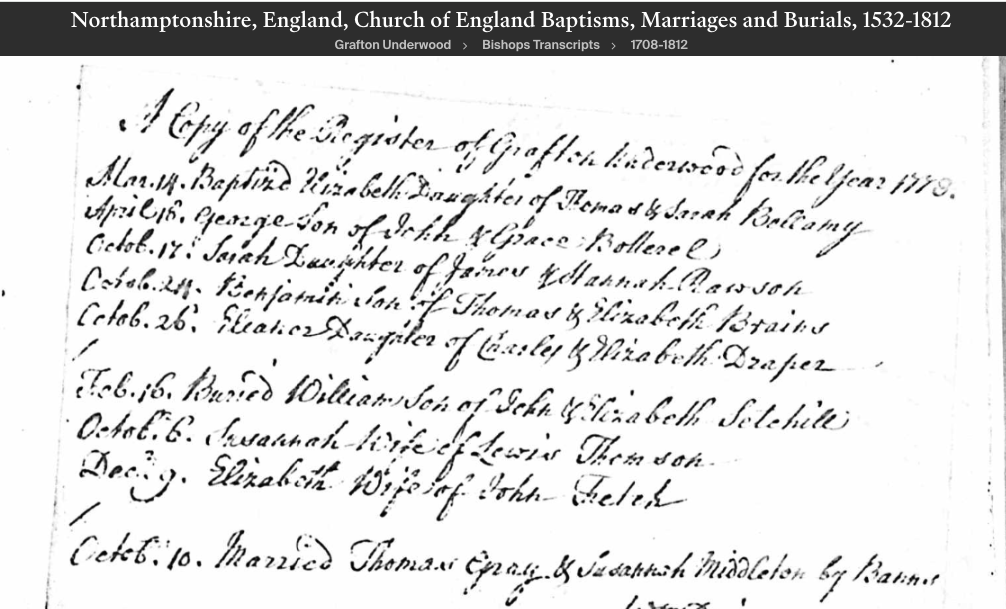 Northamptonshire, England, Church of England Baptisms, Marriages and Burials, 1532-1812
Grafton Underwood > Bishops Transcripts > 1708-1812
A Copy of the Register of Grafton Underwood for the Year 1778.
Mar. 14. Baptized Elizabeth Daughter of Thomas & Sarah Bellamy
April 18. George Son of John & Grace Botterel
Octob. 17. Sarah Daughter of James & Hannah Rawson
Octob. 24. Benjamin Son of Thomas & Elizabeth Brains
Octob. 26. Eleanor Daughter of Charles & Elizabeth Draper
Feb. 16. Buried William Son of John & Elizabeth Selchill
Octob. 6. Susannah Wife of Lewis Thomson
Decr. 9. Elizabeth Wife of John Fetch
Octob. 10. Married Thomas Gray & Susannah Middleton by Banns